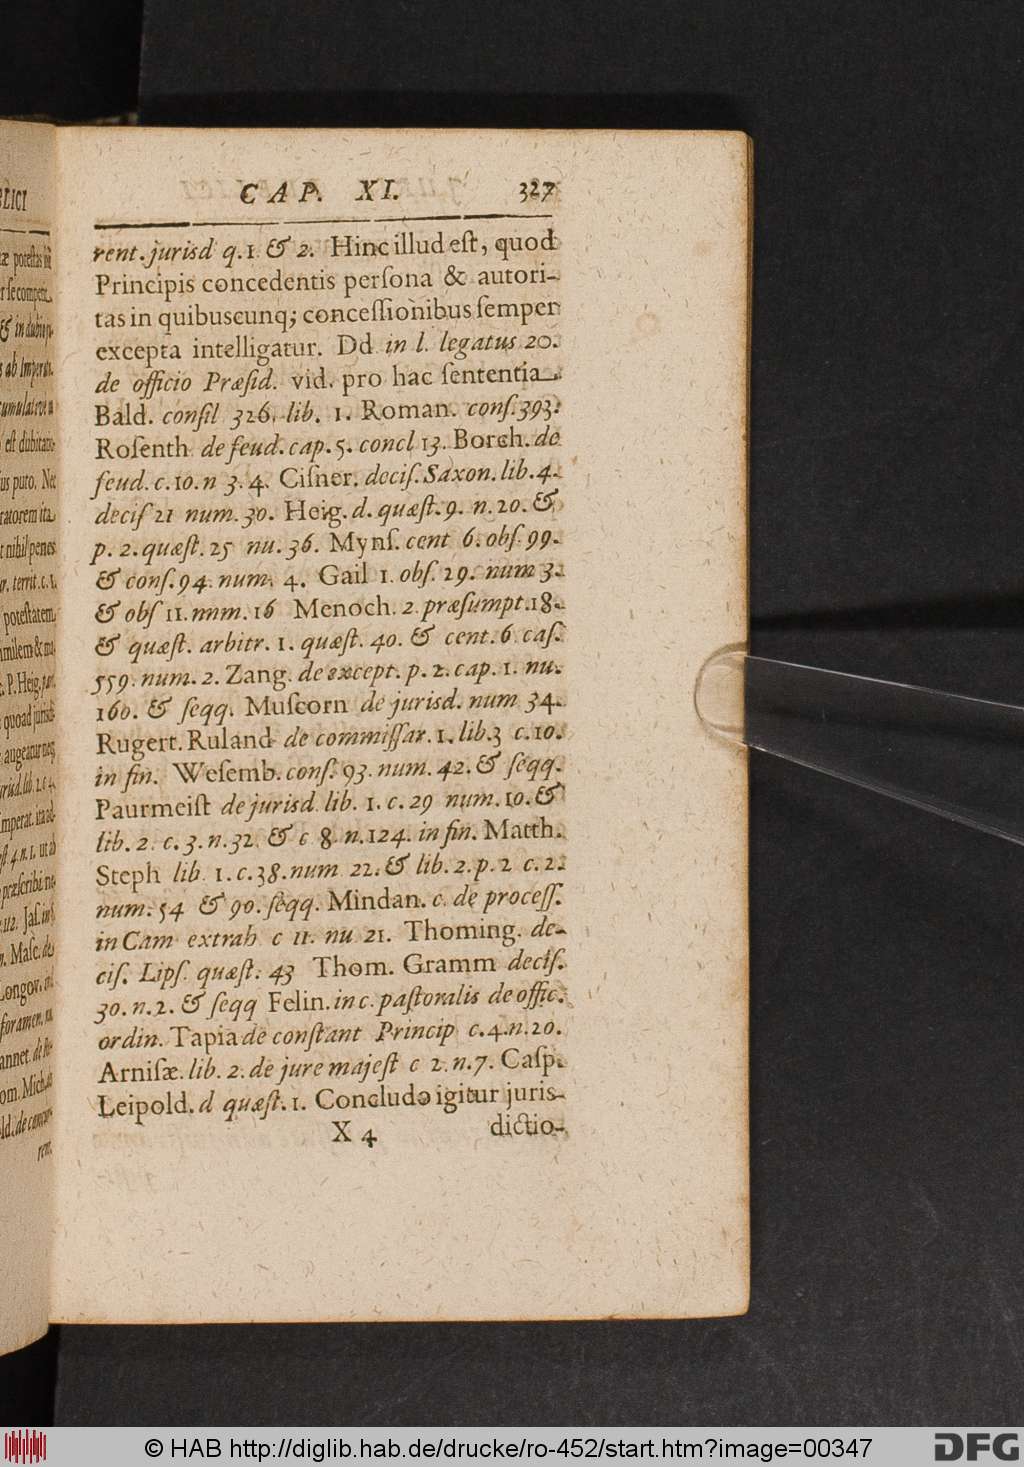 CAP. XI. 327
rent. jurisd q. 1 & 2. Hinc illud est, quod
Principis concedentis persona & autori-
tas in quibuscunq; concessionibus semper
excepta intelligatur. Dd in l. legatus 20.
de officio Præsid. vid. pro hac sententia
Bald. consil 326. lib. 1. Roman. cons. 393.
Rosenth de feud. cap. 5. concl 13. Borch. de
feud. c. 10. n 3. 4. Cisner. decis. Saxon. lib. 4.
decis 21 num. 30. Heig. d. quæst. 9. n. 20. &
p. 2. quæst. 25 nu. 36. Myns. cent 6. obs. 99.
& cons. 94. num. 4. Gail 1. obs. 29. num 3.
& obs 11. nnm. 16 Menoch. 2. præsumpt. 18.
& quæst. arbitr. 1. quæst. 40. & cent. 6. cas.
559. num. 2. Zang. de except. p. 2. cap. 1. nu.
160. & seqq. Muscorn de jurisd. num 34.
Rugert. Ruland de commissar. 1. lib. 3 c. 10.
in fin. Wesemb. cons. 93. num. 42. & seqq.
Paurmeist de jurisd lib. 1. c. 29 num. 10. &
lib. 2. c. 3. n. 32. & c 8. n. 124. in fin. Matth.
Steph lib 1. c. 38. num 22. & lib. 2. p. 2 c. 2.
num. 54 & 90. seqq. Mindan. c. de process.
in Cam extrah c 11. nu 21. Thoming. de-
cis. Lips. quæst. 43 Thom. Gramm decis.
30. n. 2. & seqq Felin. in c. pastoralis de offic.
ordin. Tapia de constant Princip c. 4. n. 20.
Arnisæ. lib. 2. de jure majest c 2. n. 7. Casp.
Leipold. d quæst. 1. Concludo igitur juris-
X 4 dictio-
© HAB http://diglib.hab.de/drucke/ro-452/start.htm?image=00347
DFG